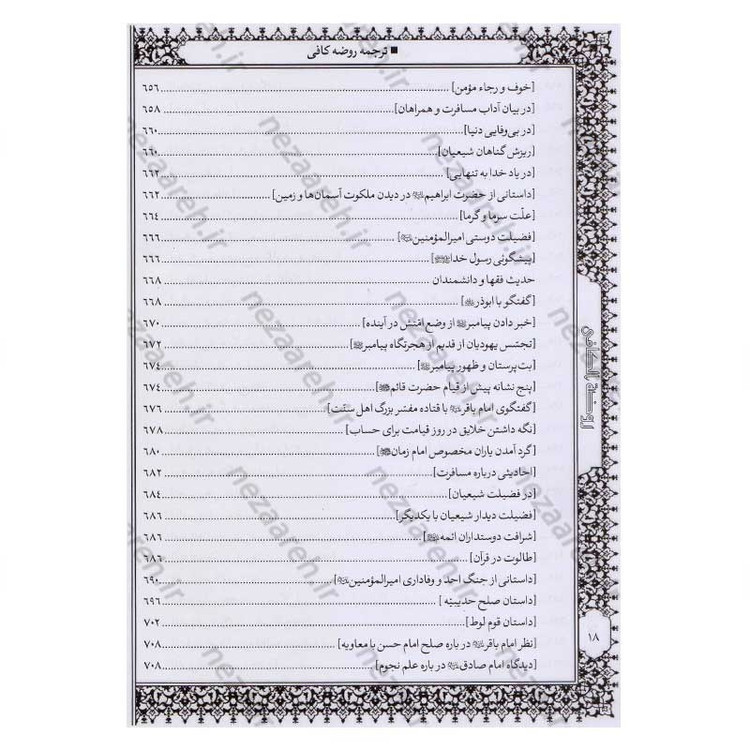 ■ ترجمه روضه کافی
[خوف و رجاء مؤمن] ........ ۶۵۶
[در بیان آداب مسافرت و همراهان] ........ ۶۵۸
[در بی‌وفایی دنیا] ........ ۶۶۰
[ریزش گناهان شیعیان] ........ ۶۶۰
[در یاد خدا به تنهایی] ........ ۶۶۲
[داستانی از حضرت ابراهیم در دیدن ملکوت آسمان‌ها و زمین] ........ ۶۶۲
[علّت سرما و گرما] ........ ۶۶۴
[فضیلت دوستی امیرالمؤمنین] ........ ۶۶۶
[پیشگوئی رسول خدا] ........ ۶۶۶
حدیث فقها و دانشمندان ........ ۶۶۸
[گفتگو با ابوذر] ........ ۶۶۸
[خبر دادن پیامبر از وضع امّتش در آینده] ........ ۶۷۰
[تجسّس یهودیان از قدیم از هجرتگاه پیامبر] ........ ۶۷۲
[بت‌پرستان و ظهور پیامبر] ........ ۶۷۴
[پنج نشانه پیش از قیام حضرت قائم] ........ ۶۷۴
[گفتگوی امام باقر با قتاده مفسّر بزرگ اهل سنّت] ........ ۶۷۶
[نگه داشتن خلایق در روز قیامت برای حساب] ........ ۶۷۸
[گرد آمدن یاران مخصوص امام زمان] ........ ۶۸۰
[احادیثی درباره مسافرت] ........ ۶۸۲
[در فضیلت شیعیان] ........ ۶۸۴
[فضیلت دیدار شیعیان با یکدیگر] ........ ۶۸۶
[شرافت دوستداران ائمه] ........ ۶۸۶
[طالوت در قرآن] ........ ۶۸۶
[داستانی از جنگ احد و وفاداری امیرالمؤمنین] ........ ۶۹۰
[داستان صلح حدیبیّه] ........ ۶۹۶
[داستان قوم لوط] ........ ۷۰۲
[نظر امام باقر در باره صلح امام حسن با معاویه] ........ ۷۰۸
[دیدگاه امام صادق در باره علم نجوم] ........ ۷۰۸
روضة الکافی
۱۸
nezaareh.ir